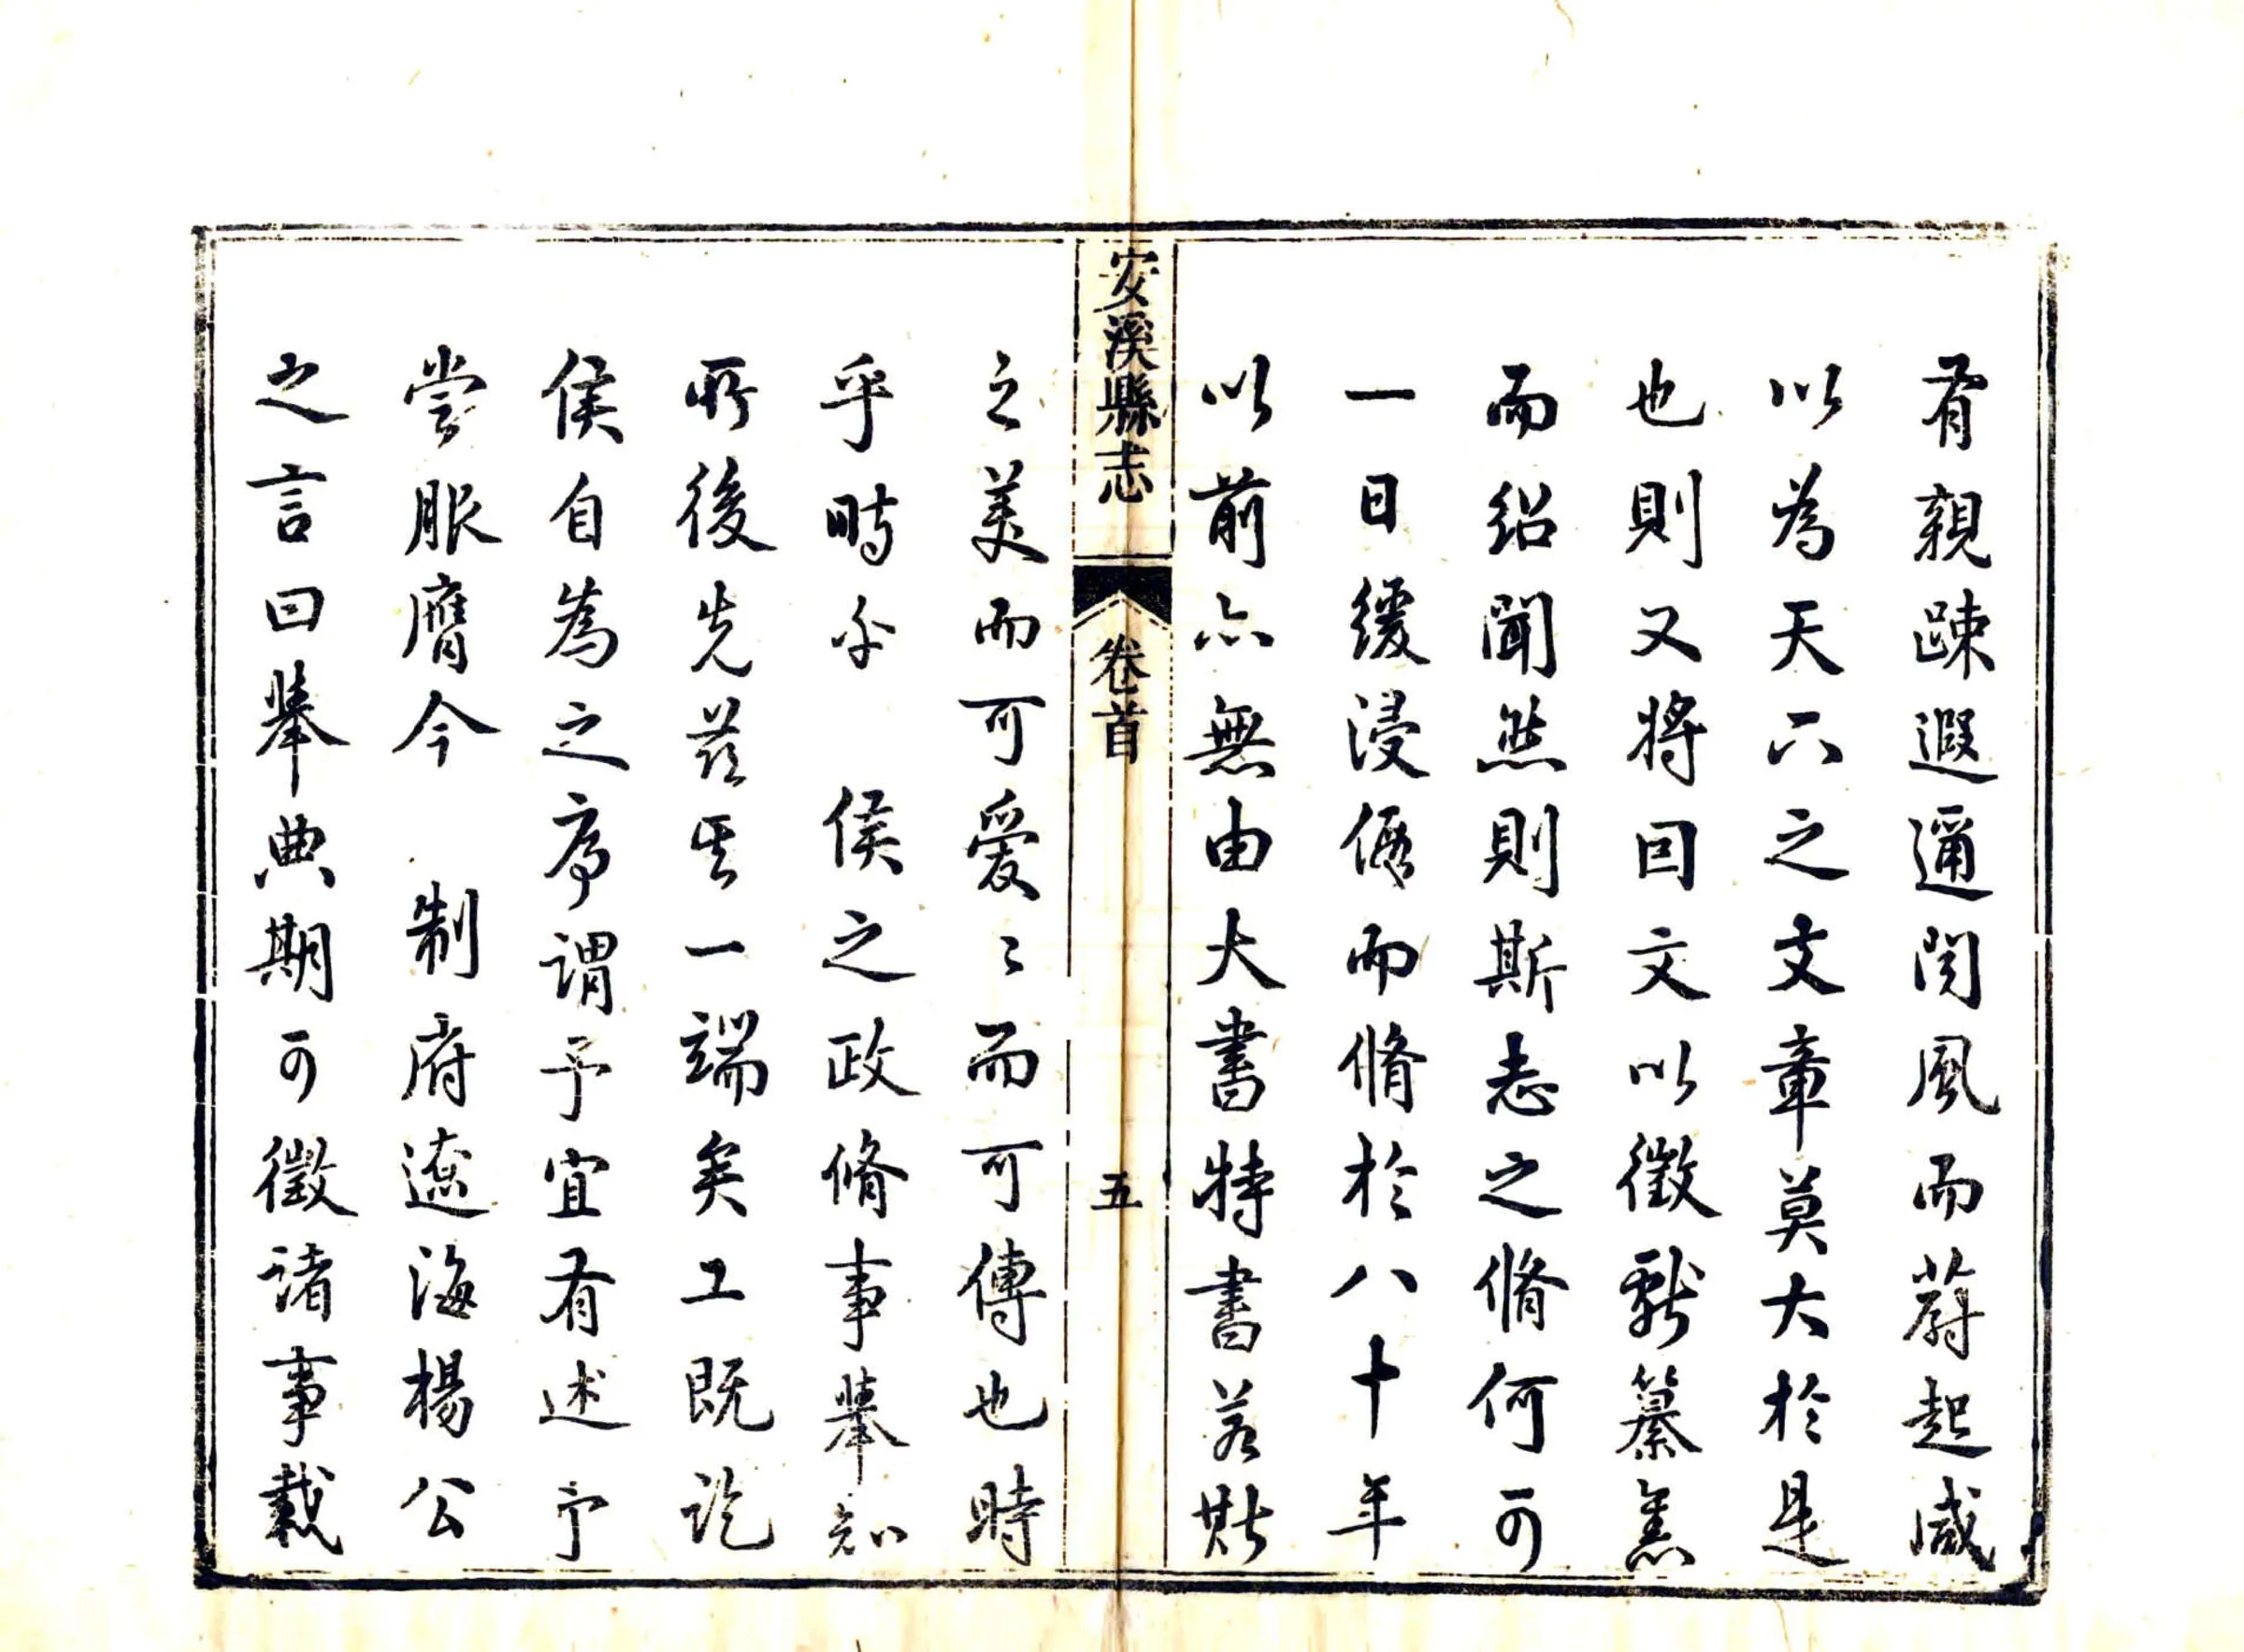 有親踈遐邇聞風而蔚起咸
以為天下之文章莫大於是
也則又將因文以徵獻纂舊
而紹聞然則斯志之脩何可
一日緩浸假而脩於八十年
以前亦無由大書特書若斯
安溪縣志 卷首 五
之美而可愛〻而可傳也時
乎時乎 侯之政脩事舉知
所後先茲其一端矣工既訖
侯自為之序謂予宜有述予
嘗服膺今 制府遼海楊公
之言曰舉典期可徵諸事載